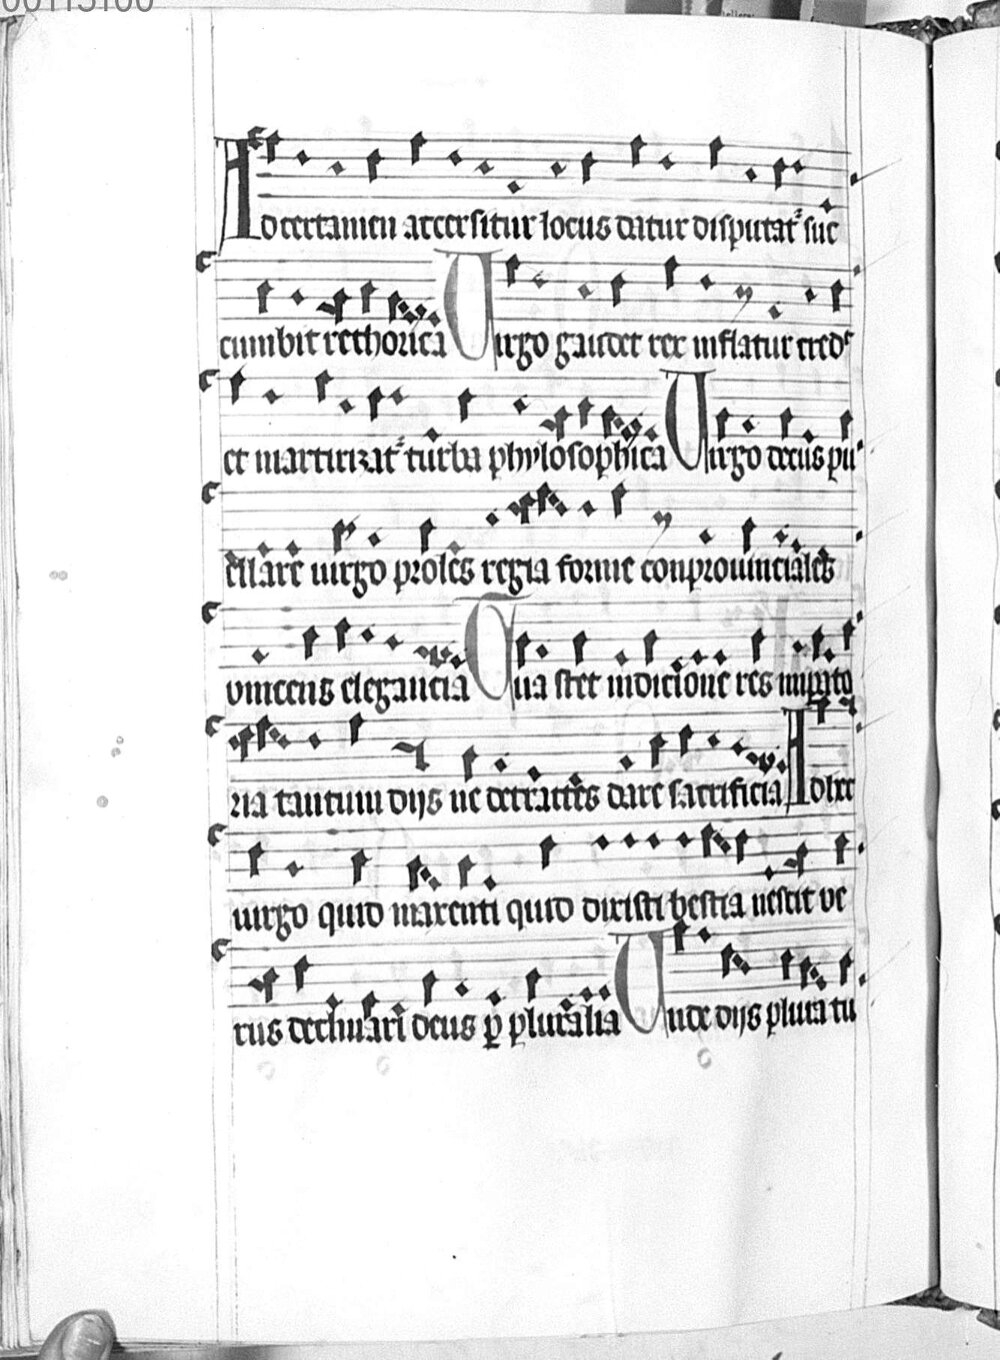 00115100
Ad certamen accersitur locus datur disputat᷑ suc
cumbit rethorica Virgo gaudet rex inflatur cred᷑
et martirizat᷑ turba phylosophica Virgo decus pu
ellare uirgo proles regia forme conprouinciales
vincens elegancia Qua stet indicione res
ria tantum dijs ne detractes dare sacrificia Ad hec
uirgo quid maxenti quid dixisti bestia nescit ve
rus declinari deus per pluralia Unde dijs plura tu